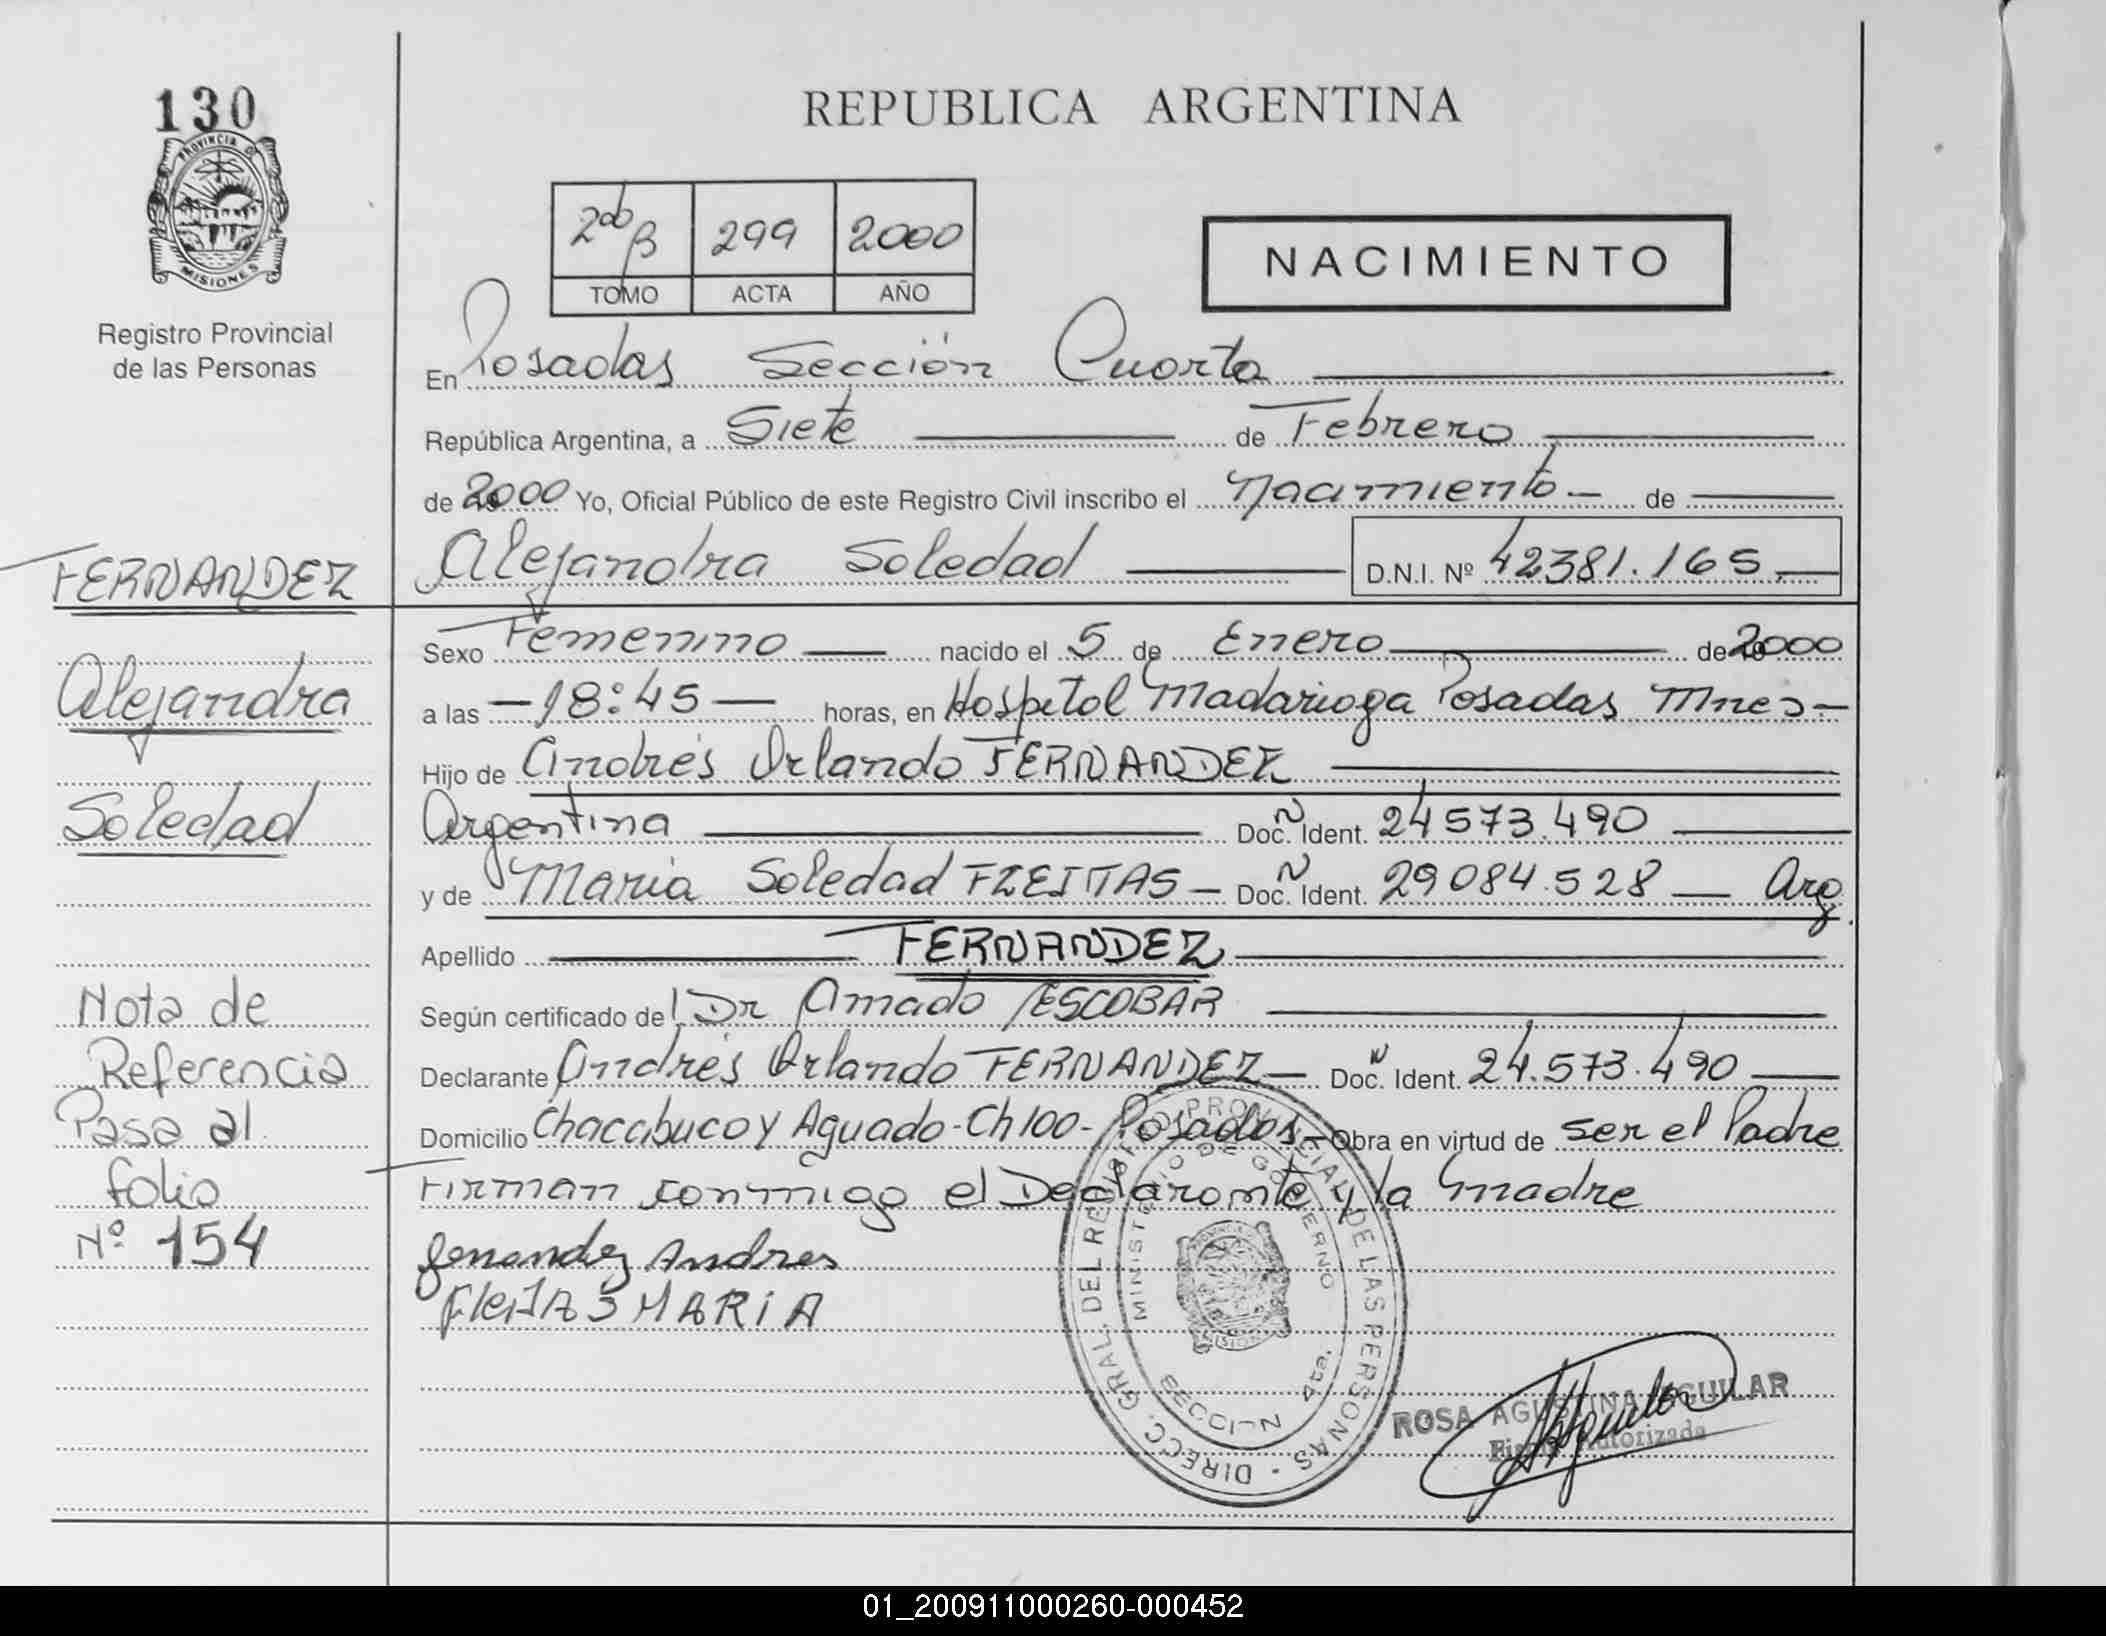 130
PROVINCIA DE
MISIONES
Registro Provincial
de las Personas
REPUBLICA ARGENTINA
2do B 299 2000
TOMO ACTA AÑO
NACIMIENTO
En Posadas Sección Cuarta
República Argentina, a Siete de Febrero
de 2000 Yo, Oficial Público de este Registro Civil inscribo el Nacimiento de
Alejandra Soledad D.N.I. Nº 42381.165
FERNANDEZ
Alejandra
Soledad
Nota de
Referencia
Pasa al
folio
Nº 154
Sexo Femenino nacido el 5 de Enero de 2000
a las 18:45 horas, en Hospital Madariaga Posadas Mnes
Hijo de Andrés Orlando FERNANDEZ
Argentina Doc. Ident. Nº 24573.490
y de Maria Soledad FLEITAS Doc. Ident. Nº 29084.528 Arg.
Apellido FERNANDEZ
Según certificado del Dr Amado ESCOBAR
Declarante Andrés Orlando FERNANDEZ Doc. Ident. Nº 24.573.490
Domicilio Chacabuco y Aguado - Ch 100 - Posadas - Obra en virtud de ser el Padre
Firman conmigo el Declarante y la Madre
Fernandez Andres
FleITAS MARiA
DIRECC. GRAL. DEL REGISTRO PROVINCIAL DE LAS PERSONAS
MINISTERIO DE GOBIERNO
SECCION 4ta.
ROSA AGUSTINA AGUILAR
Firma Autorizada
01_200911000260-000452